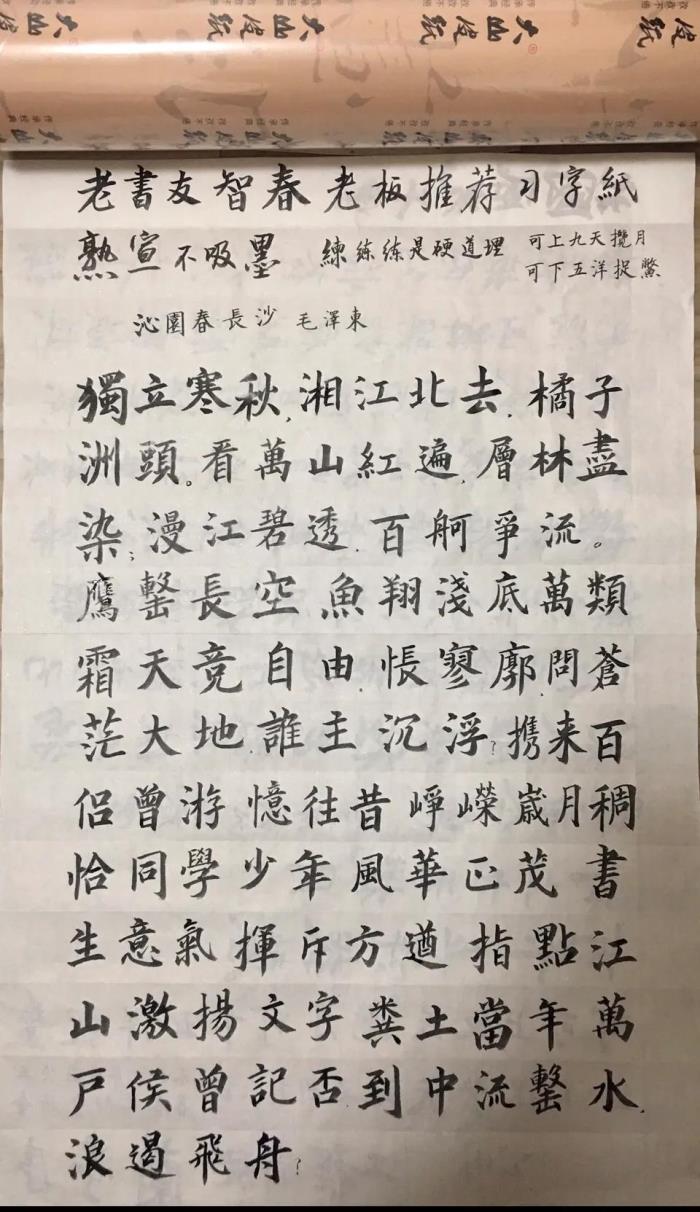 大山皮紙
老書友智春 老板推荐习字紙
熟宣不吸墨 練練練是硬道理 可上九天攬月
可下五洋捉鱉
沁園春長沙 毛澤東
獨立寒秋,湘江北去.橘子
洲頭。看萬山紅遍,層林盡
染;漫江碧透.百舸爭流。
鷹擊長空魚翔淺底萬類
霜天竞自由.悵寥廓.問蒼
茫大地.誰主沉浮?携来百
侣曾游憶往昔崢嶸崴月稠
恰同學少年風華正茂書
生意氣揮斥方遒指點江
山激揚文字糞土當年萬
戶侯曾記否.到中流擊水.
浪遏飛舟?